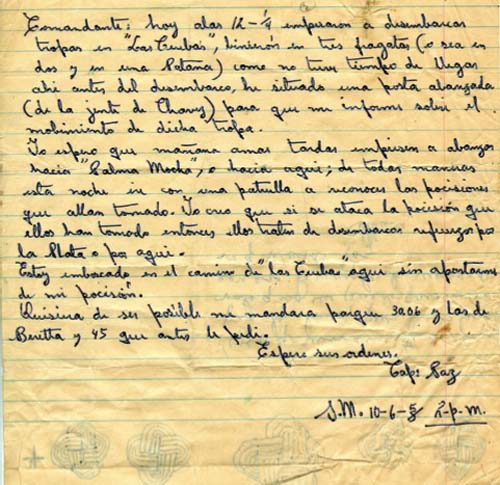 Comandante: hoy alas 12-1/4 empesaron a desembarcar
tropas en "Las Cuebas", binieron en tres fragatas (o sea en
dos y en una Patana) como no tuve tiempo de llegar
ahi antes del desembarco, he situado una posta abanzada
(de la jente de Chavez) para que me informe sobre el
mobimiento de dicha tropa.
Yo espero que mañana amas tardar empiesen a abanzar
hacia "Palma Mocha", o hacia aqui; de todas maneras
esta noche ire con una patrulla a reconocer las pocisiones
que allan tomado. Yo creo que si se ataca la pocisión que
ellos han tomado entonces ellos traten de desembarcar refuerzos por
la Plata o por aqui.
Estoy emboscado en el camino de "las Cuebas" aqui sin apostarme
de mi pocisión.
Quisiera de ser posible me mandara parque 3006 y las de
Beretta y 45 que antes le pedi.
Espero sus ordenes.
Cap: Paz
S.M. 10-6-58 2-p.m.